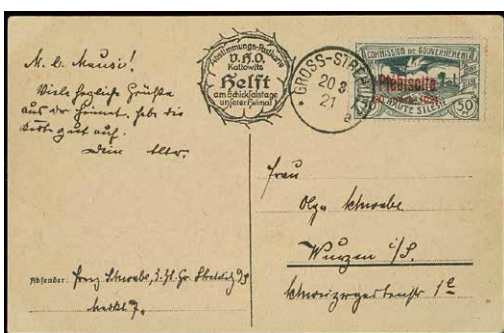 M. l. Mausi!
Viele herzliche Grüße
aus der Heimat. habe die
Karte gut auf.
Dein Alter.
Abstimmungs-Postkarte
V.H.O.
Kattowitz
Helft
am Schicksalstage
unserer Heimat
GROSS-STREHLITZ
20 3
21
a
COMMISSION DE GOUVERNEMENT
Plébiscite
20 mars 1921.
HAUTE SILÉSIE
50
Frau
Olga Schwabe
Wurzen i/S.
1e
Absender: Franz Schwabe, z. Zt. Gr. Strehlitz O/S
Markt 7.